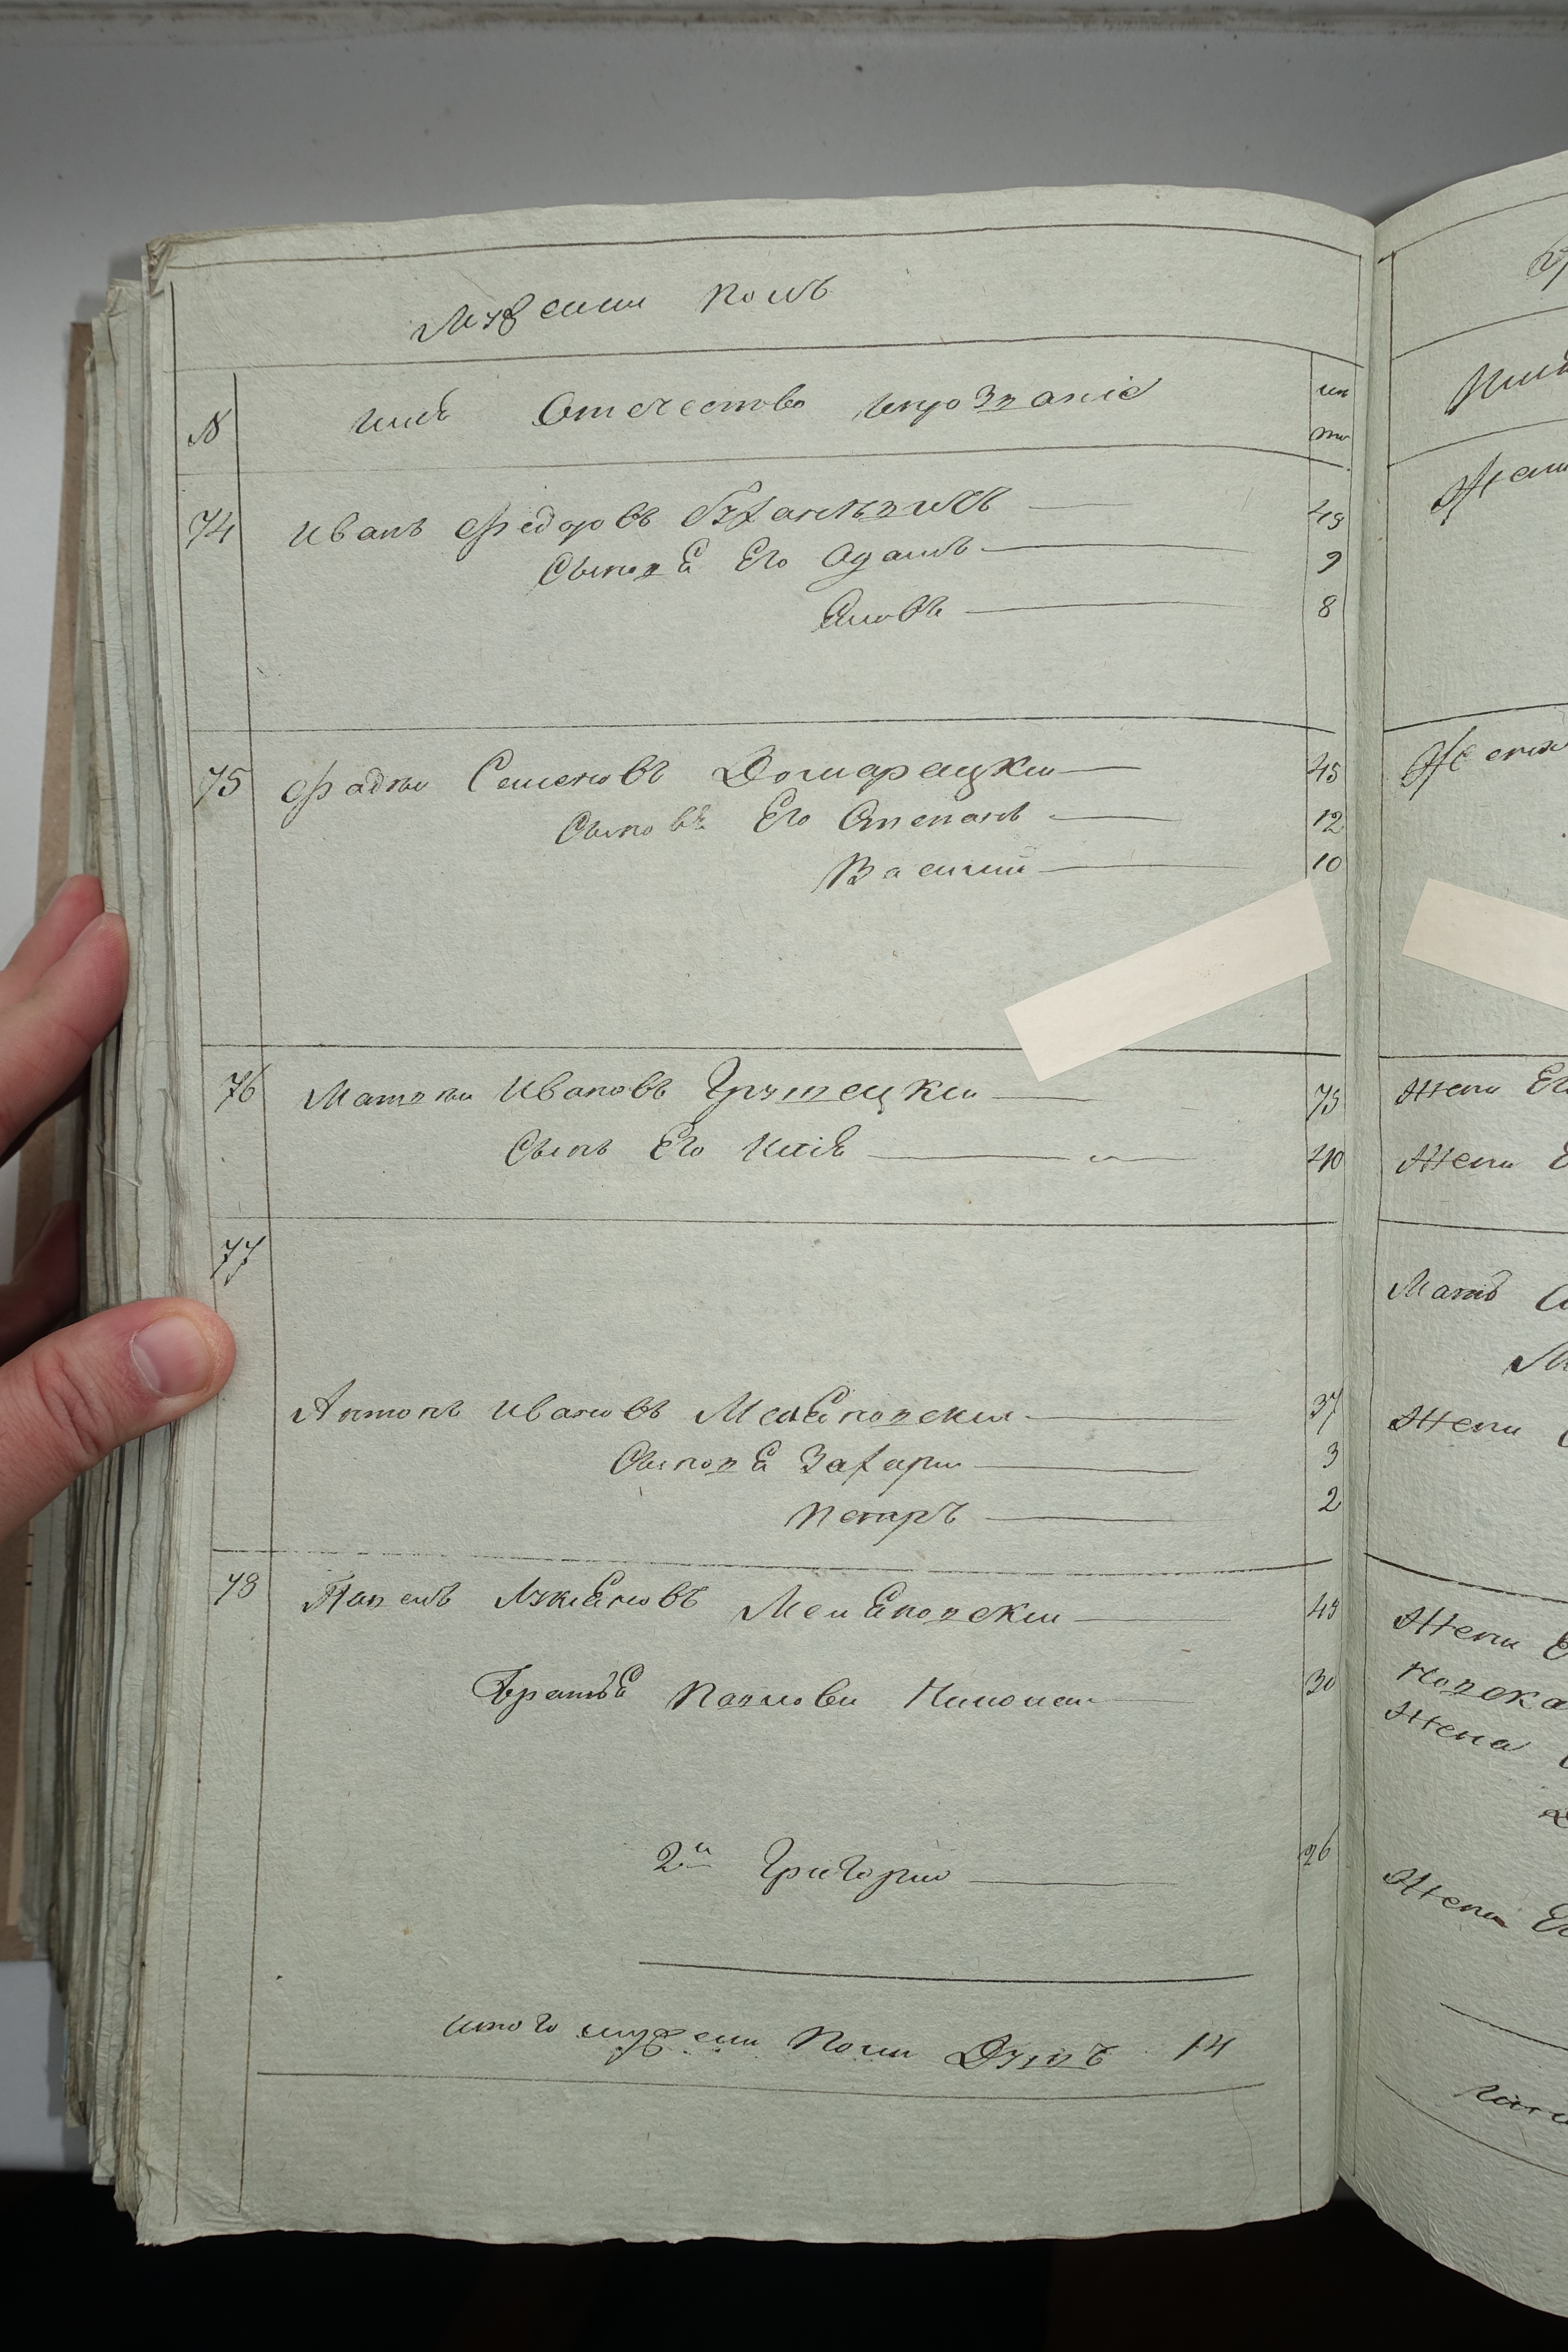 Мужески полъ
№ имѣ Отечество ипрозваніе ле
та
74 Иванъ Федоровъ 49
Сыновя Его Адамъ 9
Яковъ 8
75 Фадѣи Семеновъ Домарацки 45
Сыновъ Его Степанъ 12
Василий 10
76 Матвѣи Ивановъ Грутецки 75
Сынъ Его 40
77
Антонъ Ивановъ Меляновски 37
Сыновя Захари 3
Петръ 2
78 Павелъ Лукяновъ Меляновски 49
Братья Павлови 30
2й Григории 26
итого мужески полу Душъ 14
Жени Ег
Жени Е
Мать
Жени
Жени Е
новска
Жена
Жени Ег